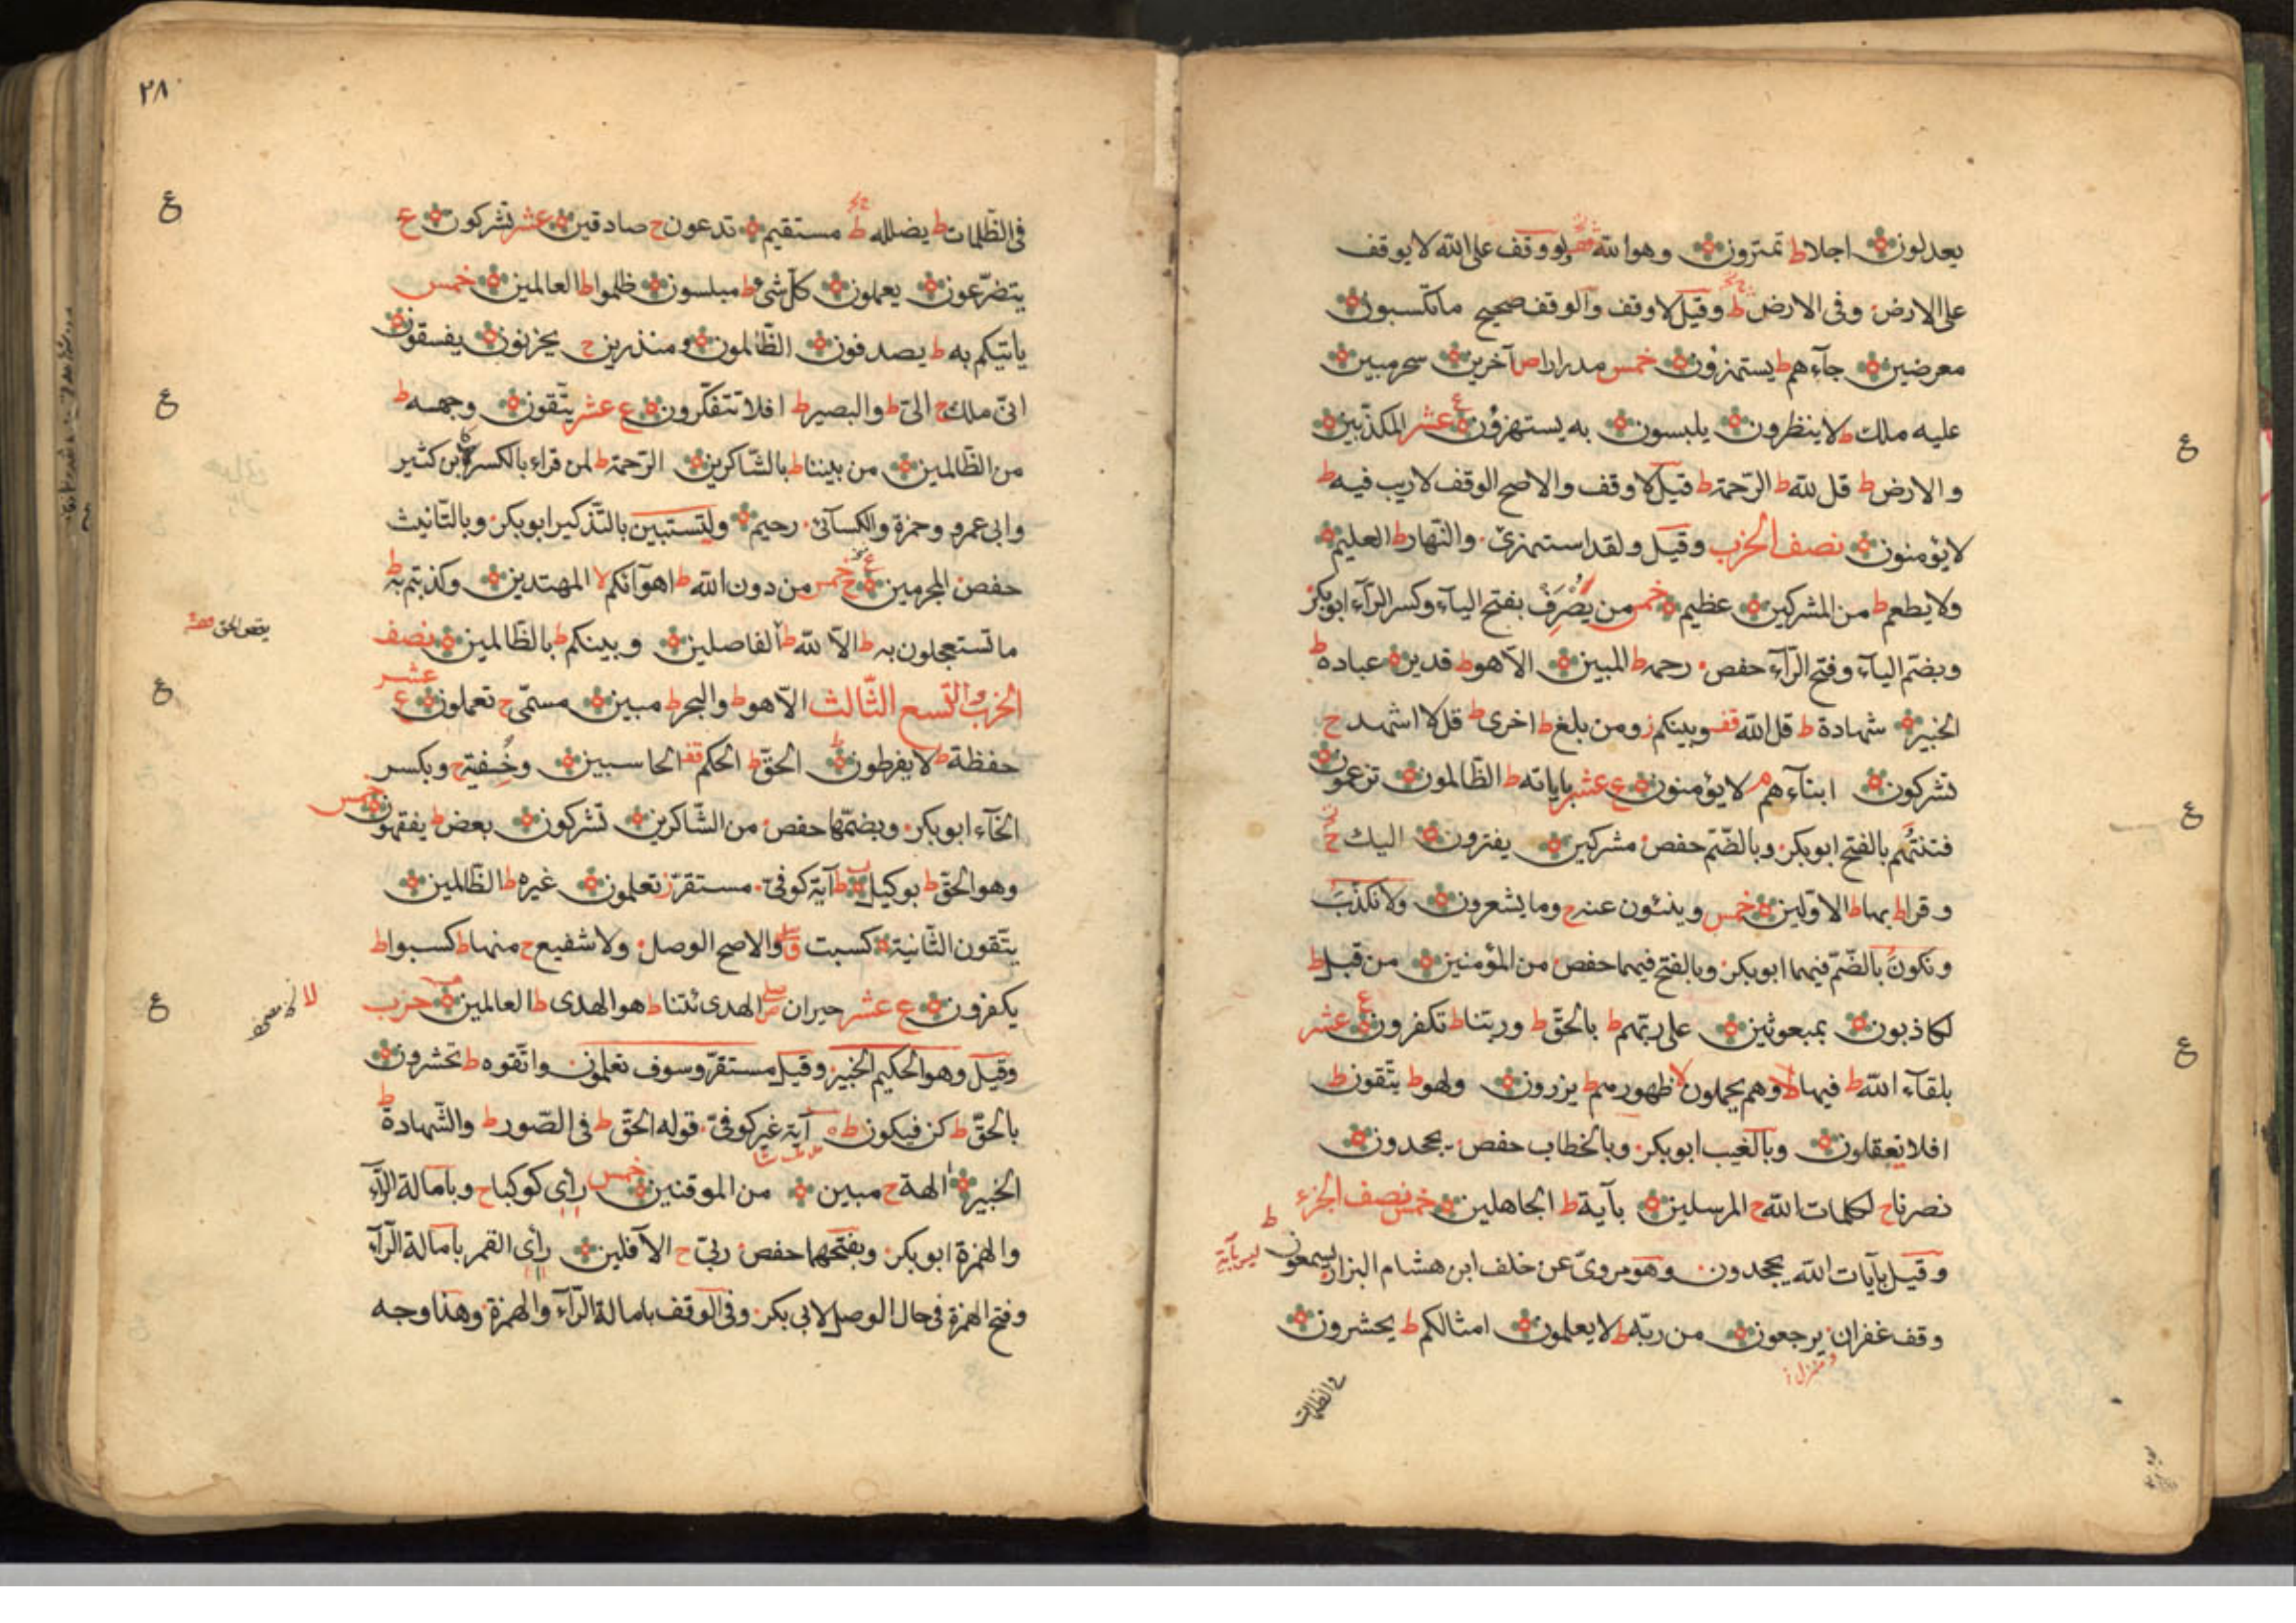 يعدلون اجلا ط تمترون وهو الله قف ولو وقف على الله لا يوقف
على الارض وفى الارض ط وقيل لا وقف والوقف صحيح ما تكسبون
معرضين جآءهم ط يستهزؤن خمس مدرارا ص آخرين سحر مبين
عليه ملك ط لا ينظرون يلبسون به يستهزؤن ع عشر المكذبين
والارض ط قل لله ط الرحمة ط قيل لا وقف والاصح الوقف لا ريب فيه ط
لا يؤمنون نصف الحزب وقيل ولقد استهزئ والنهار ط العليم
ولا يطعم ط من المشركين عظيم خمس من يصرف بفتح اليآء وكسر الرآء ابو بكر
وبضم اليآء وفتح الرآء حفص رحمه ط المبين الا هو ط قدير عباده ط
الخبير شهادة ط قل الله قف وبينكم ز ومن بلغ ط اخرى ط قل لا اشهد ح
تشركون ابنآءهم م لا يؤمنون ع عشر باياته ط الظالمون تزعمون
فتنتهم بالفتح ابو بكر وبالضم حفص مشركين يفترون اليك ح
وقرا ط بها ط الاولين خمس وينئون عنه ح وما يشعرون ولا نكذب
ونكون بالضم فيهما ابو بكر وبالفتح فيهما حفص من المؤمنين من قبل ط
لكاذبون بمبعوثين على ربهم ط بالحق ط وربنا ط تكفرون ع عشر
بلقآء الله ط فيها لا وهم يحملون لا ظهورهم ط يزرون ولهو ط يتقون ط
افلا يعقلون وبالغيب ابو بكر وبالخطاب حفص يجحدون
نصرنا ح لكلمات الله ح المرسلين بآية ط الجاهلين خمس نصف الجزء
وقيل بآيات الله يجحدون وهو مروى عن خلف ابن هشام البزار يسمعون ط ليس بآية
وقف غفران يرجعون من ربه ط لا يعلمون امثالكم ط يحشرون
فى الظلمات
٢٨
فى الظلمات ط يضلله ط مستقيم تدعون ح صادقين عشر تشركون ع
يتضرعون يعملون كل شىء ط مبلسون ظلموا ط العالمين خمس
يأتيكم به ط يصدفون الظالمون ومنذرين ح يحزنون يفسقون
انى ملك ح الى ط والبصير ط افلا تتفكرون ع عشر يتقون وجهه ط
من الظالمين من بيننا ط بالشاكرين الرحمة ط لمن قراء بالكسر كابن كثير
وابى عمرو وحمزة والكسآئى رحيم ولتستبين بالتذكير ابو بكر وبالتانيث
حفص المجرمين ع خمس من دون الله ط اهوآئكم لا المهتدين وكذبتم به ط
ما تستعجلون به ط الا لله ط الفاصلين وبينكم ط بالظالمين نصف
يقص الحق
الحزب والتسع الثالث عشر الا هو ط والبحر ط مبين مسمى ح تعملون ع
حفظة ط لا يفرطون الحق ط الحكم قف الحاسبين وخفية ح وبكسر
الخآء ابو بكر وبضمها حفص من الشاكرين تشركون بعض ط يفقهون خمس
وهو الحق ط بوكيل ط آية كوفى مستقر ز تعلمون غيره ط الظالمين
يتقون الثانية كسبت ق والاصح الوصل ولا شفيع ح منها ط كسبوا ط
يكفرون ع عشر حيران ص الهدى ئتنا ط هو الهدى ط العالمين حزب
وقيل وهو الحكيم الخبير وقيل مستقر وسوف تعلمون واتقوه ط تحشرون
بالحق ط كن فيكون ط آية غير كوفى قوله الحق ط فى الصور ط والشهادة ط
الخبير الهة ح مبين من الموقنين خمس رأى كوكبا ح وبامالة الرآء
والهمزة ابو بكر وبفتحهما حفص ربى ح الآفلين رأى القمر بامالة الرآء
وفتح الهمزة فى حال الوصل لابى بكر وفى الوقف بامالة الرآء والهمزة وهذا وجه